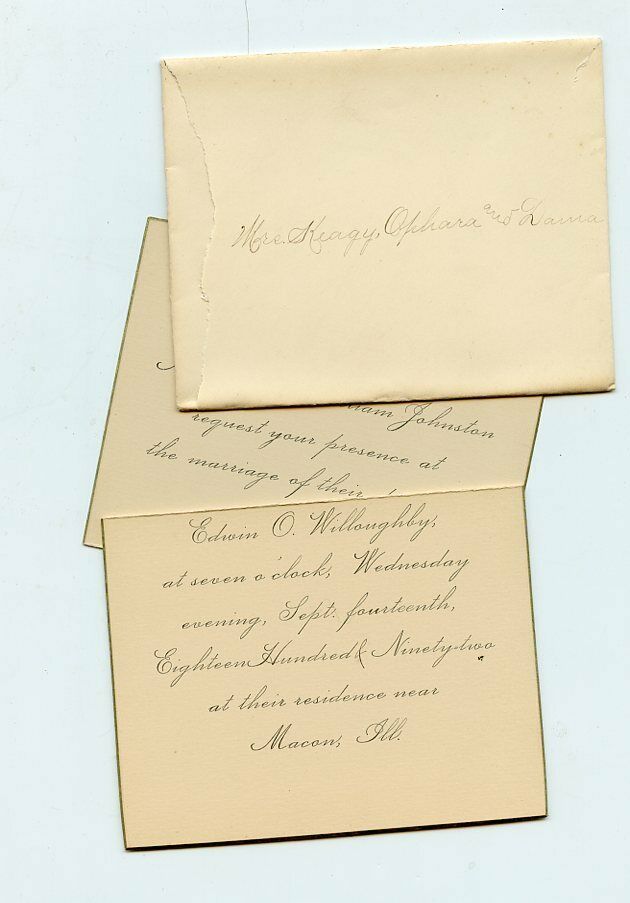 Mrs. Keagy, Ophara and
Johnston
request your presence at
the marriage of their
Edwin O. Willoughby,
at seven o'clock, Wednesday
evening, Sept. fourteenth,
Eighteen Hundred & Ninety-two
at their residence near
Macon, Ill.